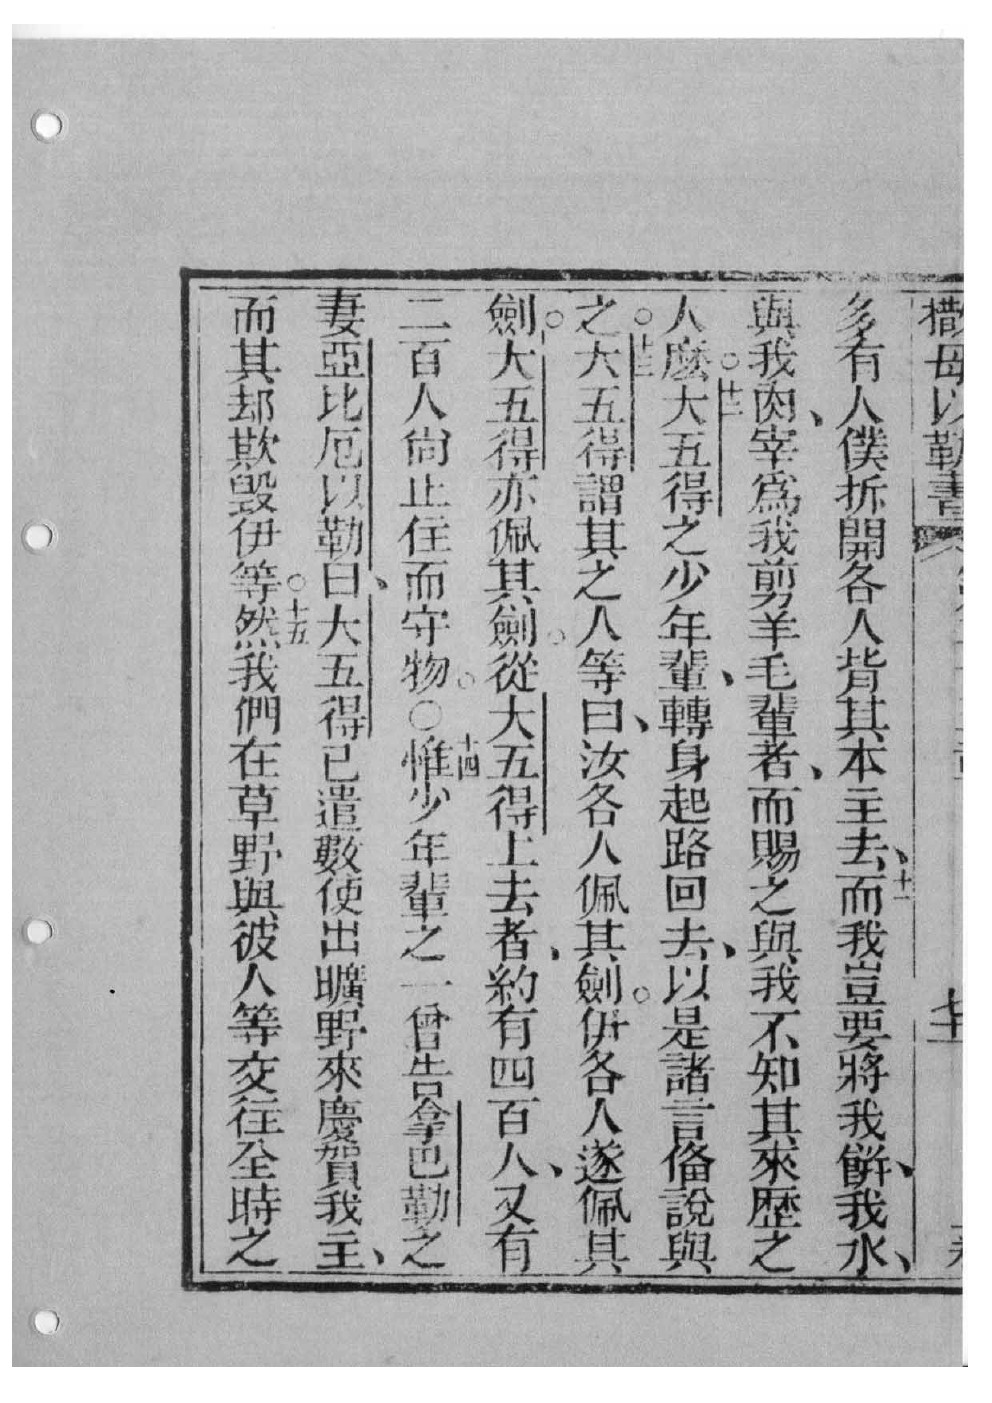 撒母以勒書
多有人僕拆開各人背其本主去、十一而我豈要將我餅、我水、
與我肉、宰為我剪羊毛輩者、而賜之與我不知其來歷之
人麽○十二大五得之少年輩、轉身起路回去、以是諸言俻說與
之○十三大五得謂其之人等曰、汝各人佩其劍○伊各人遂佩其
劍○大五得亦佩其劍○從大五得上去者、約有四百人、又有
二百人尙止住而守物○○十四惟少年輩之一曾告拿巴勒之
妻亞比厄以勒曰、大五得已遣數使出曠野來慶賀我主、
而其却欺毀伊等○十五然我們在草野與彼人等交往全時之